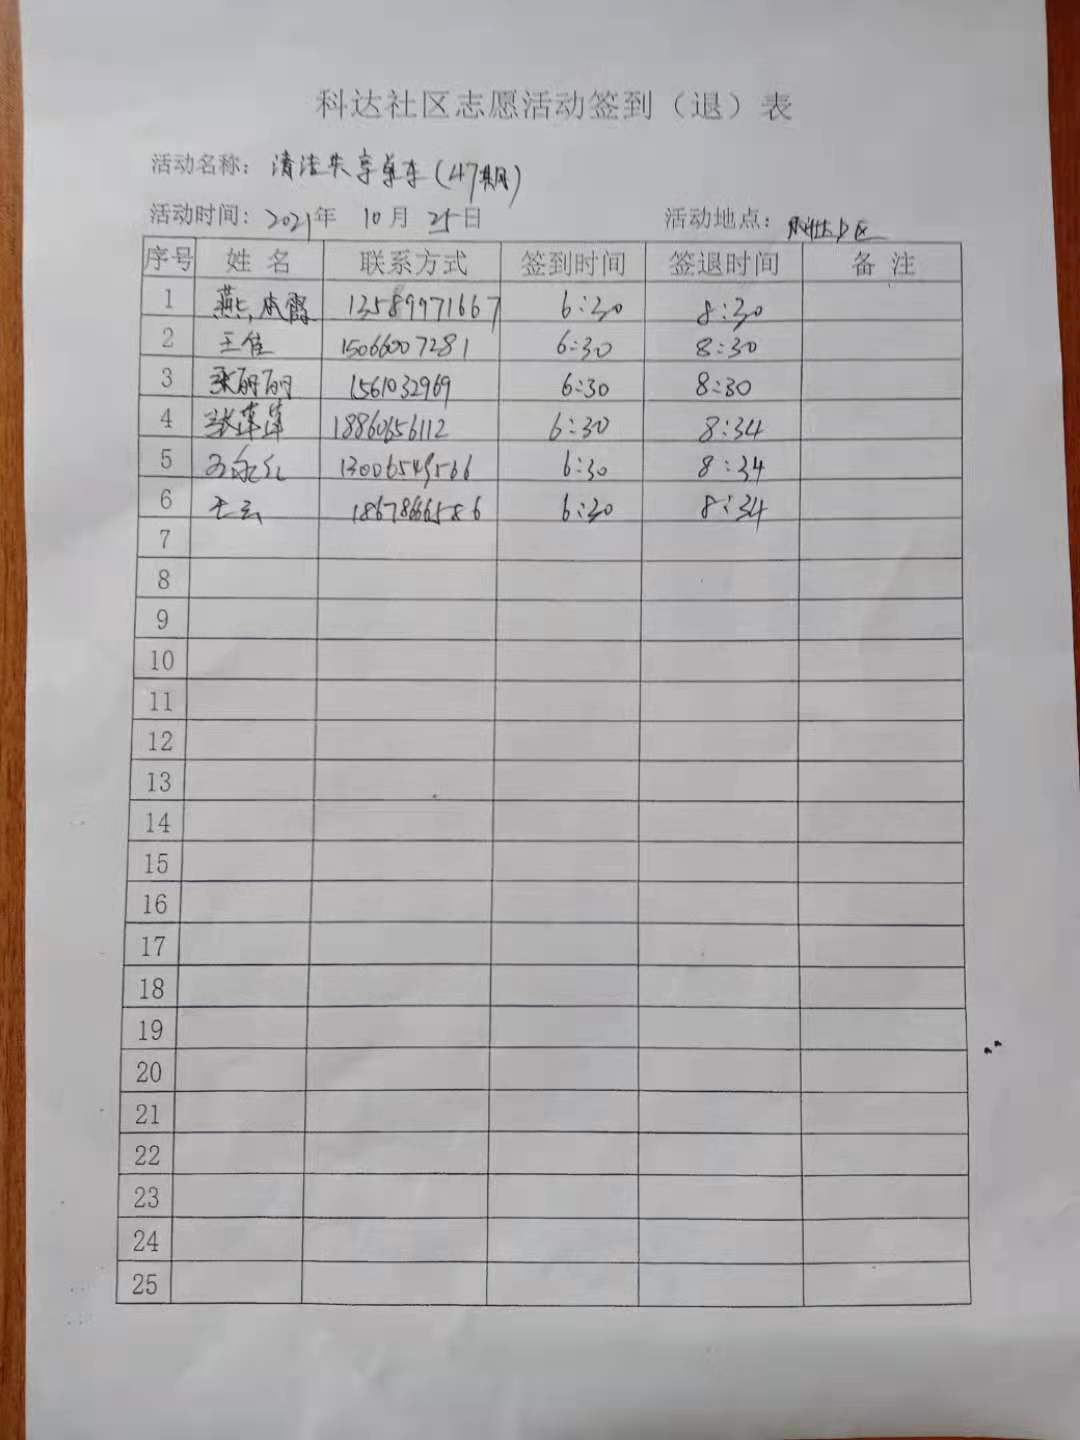 科达社区志愿活动签到（退）表
活动名称：清洁共享单车(47期)
活动时间：2021年 10月 25日 活动地点：
序号 姓名 联系方式 签到时间 签退时间 备注
1 燕 13589971667 6:30 8:30
2 王佳 15066007281 6:30 8:30
3 丽丽 1561032969 6:30 8:30
4 张莲莲 18860656112 6:30 8:34
5 13006549566 6:30 8:34
6 18678666586 6:30 8:34
7
8
9
10
11
12
13
14
15
16
17
18
19
20
21
22
23
24
25